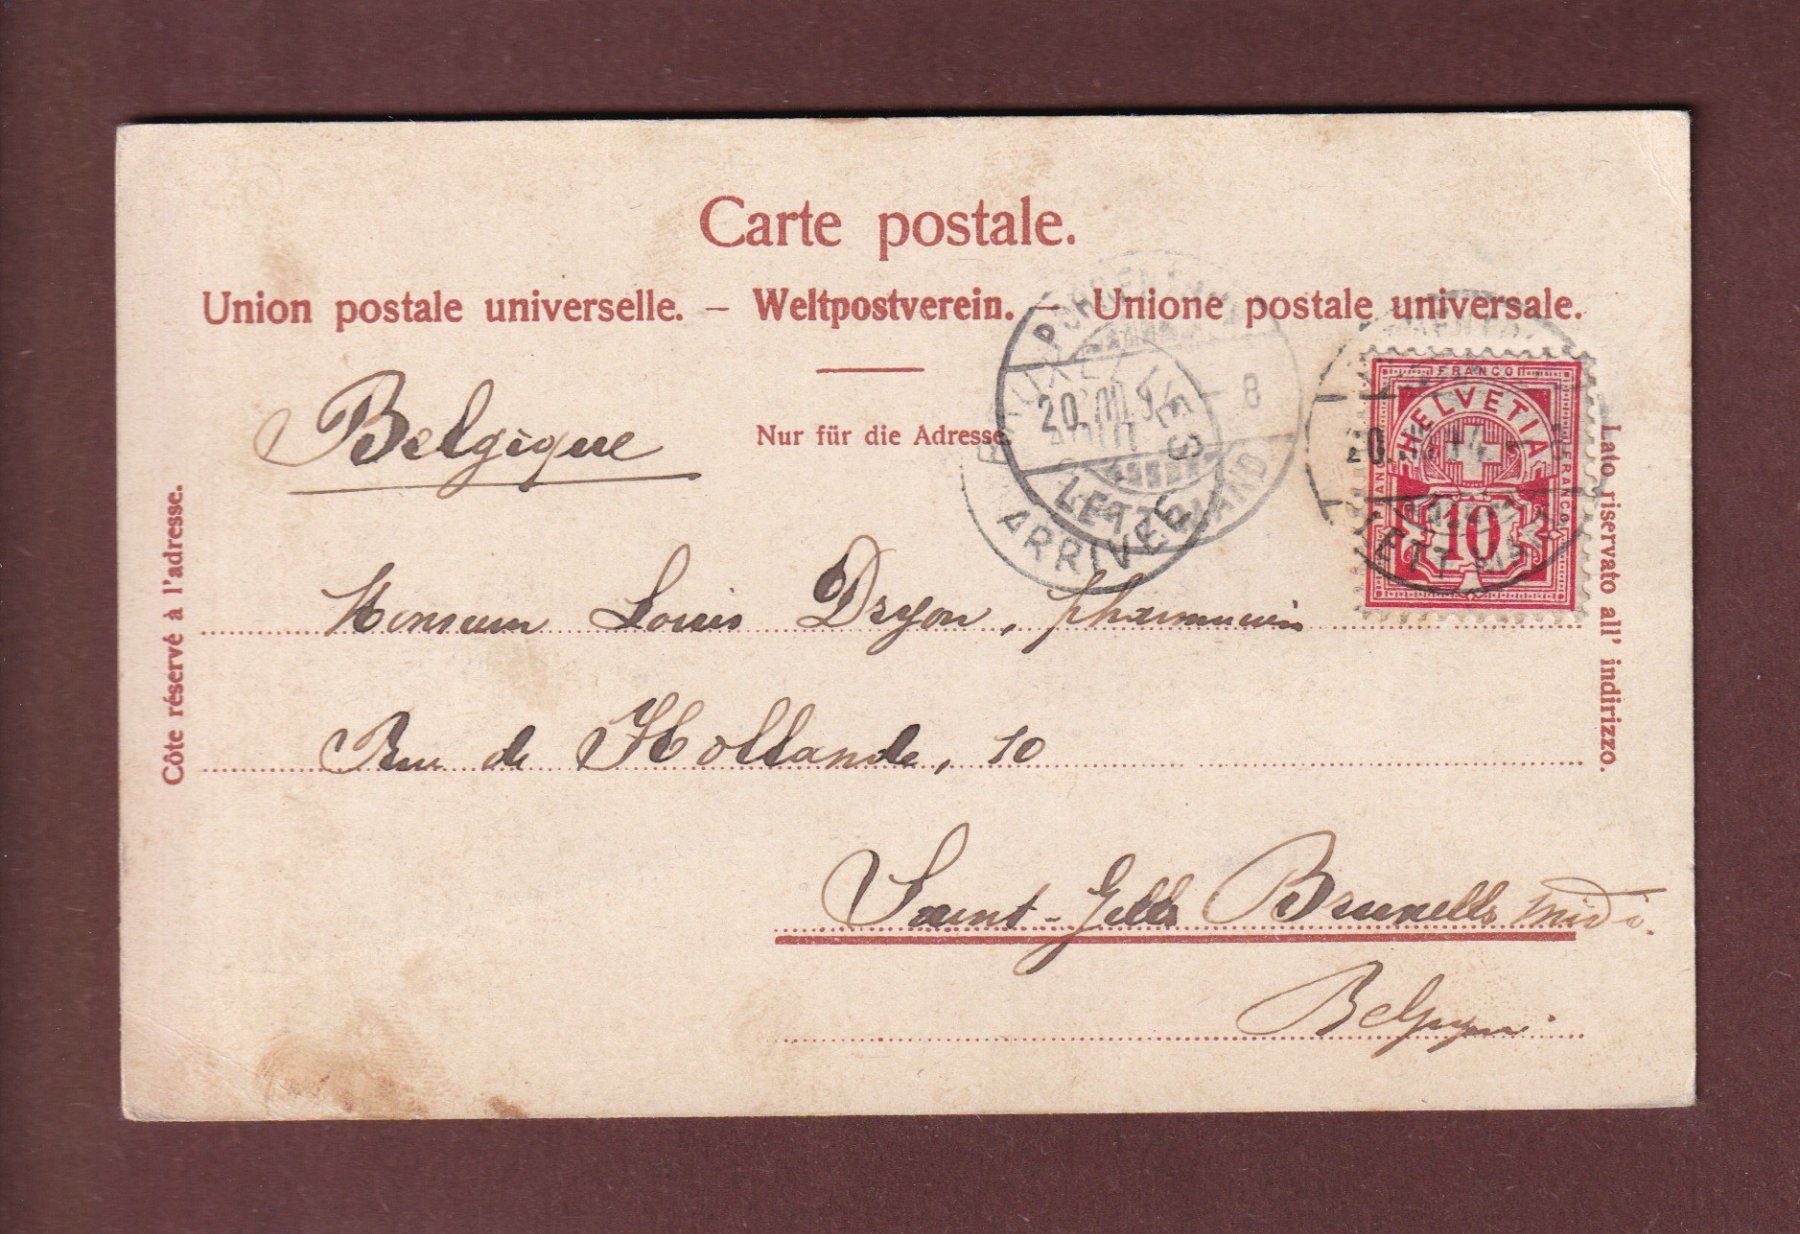 Carte postale.
Union postale universelle. – Weltpostverein. – Unione postale universale.
Nur für die Adresse.
Côte réservé à l'adresse.
Lato riservato all' indirizzo.
Belgique
Monsieur Louis Dryon, pharmacien
Rue de Hollande, 10
Saint-Gilles Bruxelles midi.
Belgique.
BRUXELLES
ARRIVÉE
20.
8
FRANCO
HELVETIA
FRANCO
FRANCO
10
20.